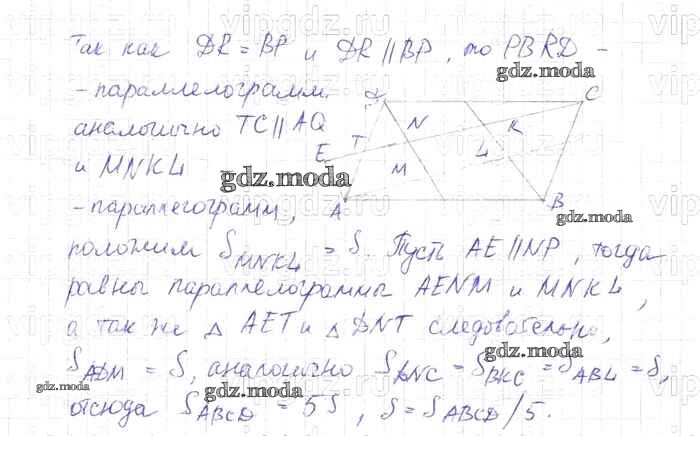 Так как DR = BP и DR || BP, то PBRD -
gdz.moda
- параллелограмм.
аналогично TC || AQ
и MNKL
- параллелограмм,
C
N
K
T
E
L
M
A
B
gdz.moda
gdz.moda
положим S MNKL = S. Пусть AE || NP, тогда
равны параллелограммы AENM и MNKL,
а так же △ AET и △ DNT следовательно,
gdz.moda
S ADM = S, аналогично S DNC = S BKC = S ABL = S,
gdz.moda
gdz.moda
отсюда S ABCD = 5S, S = S ABCD / 5.
vipgdz.ru